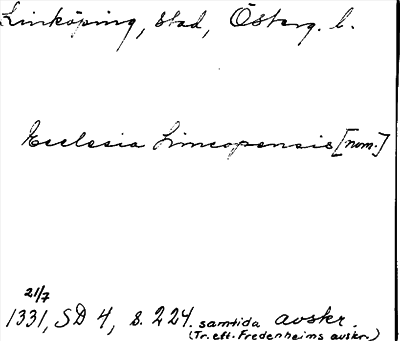 Linköping, stad, Österg. l.
Ecclesia Lincopensis [nom.]
21/7
1331, SD 4, s. 224. samtida avskr.
(Tr. eft. Fredenheims avskr.)